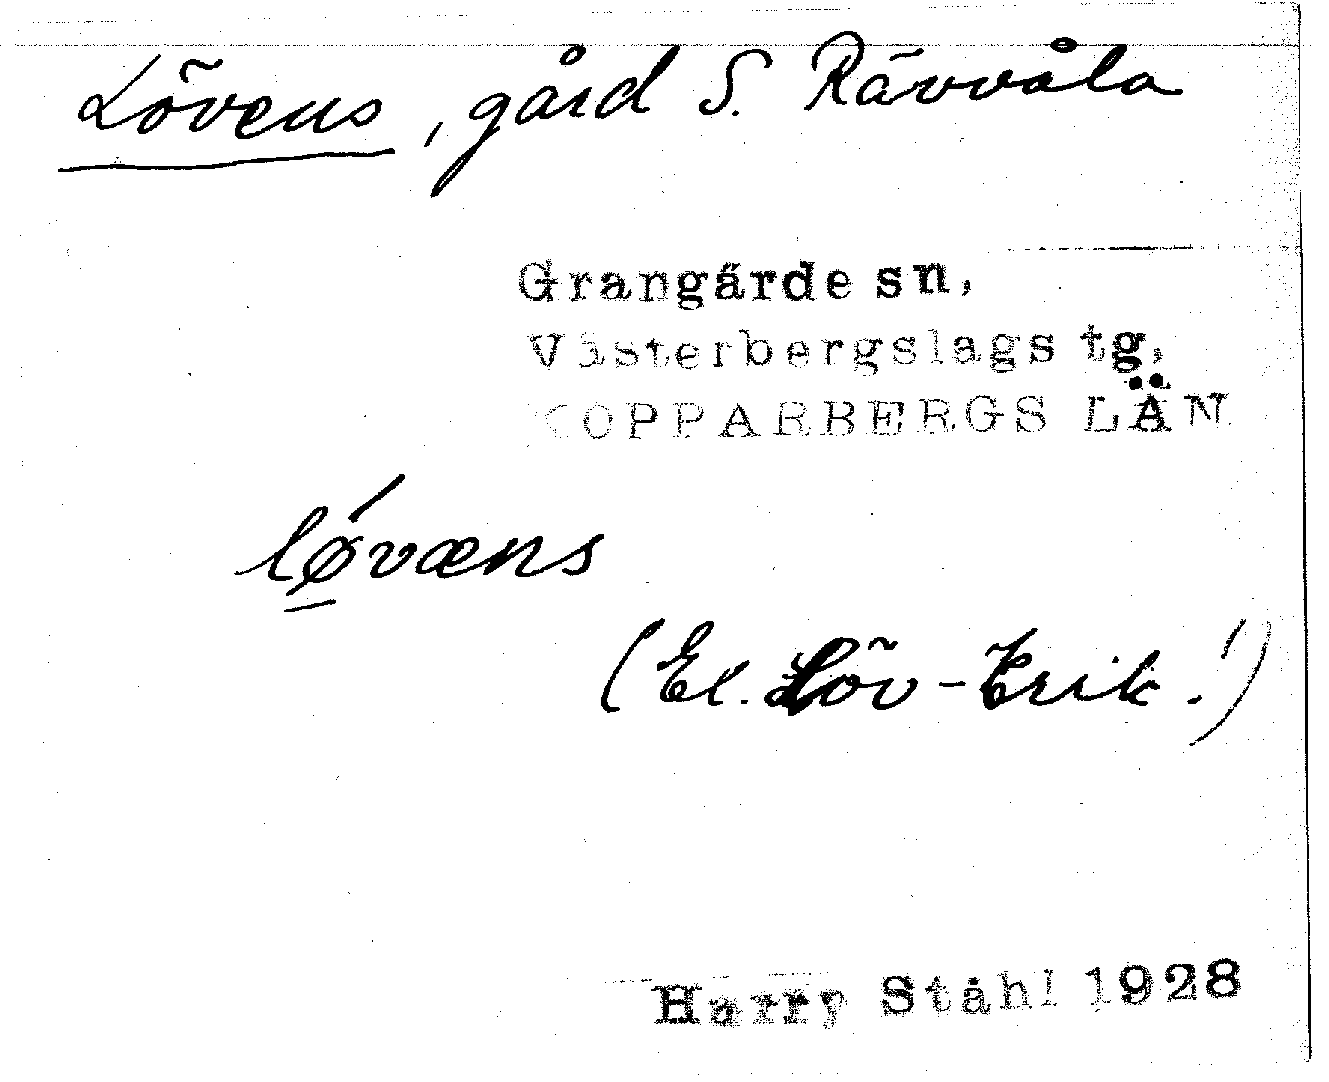 Lövens, gård S. Rävvåla
Grangärde sn,
Västerbergslags tg,
KOPPARBERGS LÄN
lǿ̱væns
(El. Löv-Erik!)
Harry Ståhl 1928